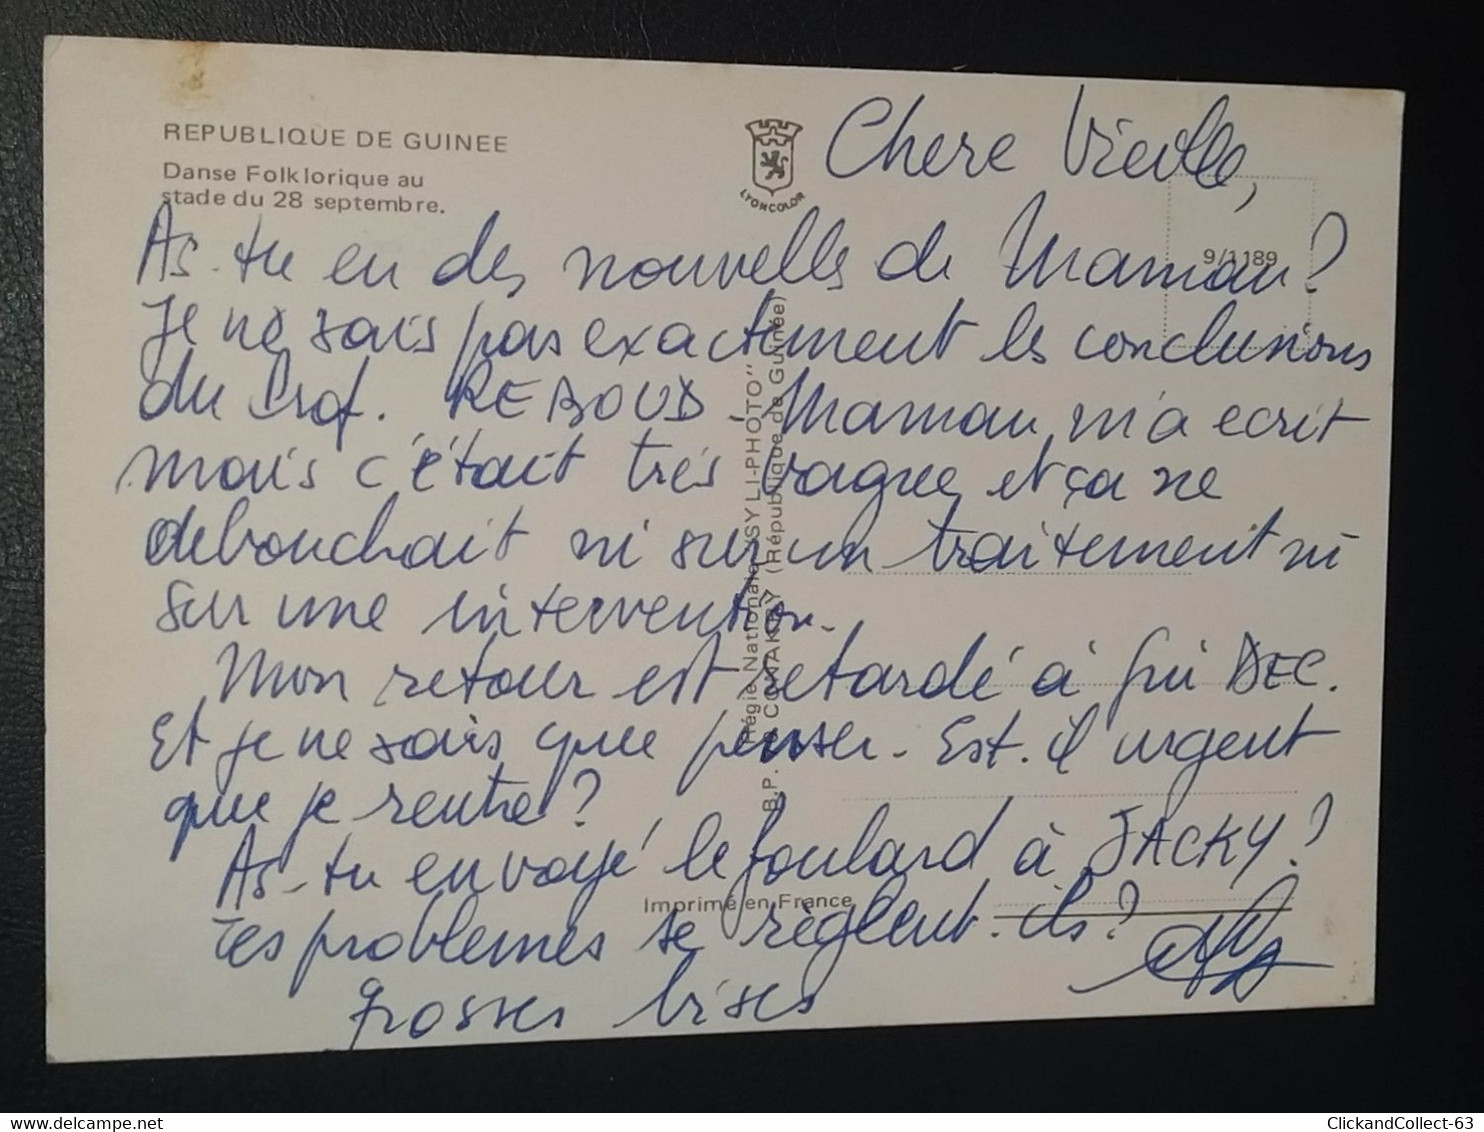 REPUBLIQUE DE GUINEE
Danse Folklorique au
stade du 28 septembre.
LYONCOLOR
9/1189
Chere Vieille,
As-tu eu des nouvelles de Maman?
Je ne sais pas exactement les conclusions
du Prof. REBOUD - Maman m'a ecrit
mais c'était très vague, et ça ne
debouchait ni sur un traitement ni
sur une intervention.
Mon retour est retardé à fin DEC.
Et je ne sais que penser. Est-il urgent
que je rentre?
As-tu envoyé le foulard à JACKY?
Tes problemes se règlent-ils?
grosses bises
Régie Nationale "SYLI-PHOTO"
B.P. CONNAKRY (République de Guinée)
Imprimé en France
delcampe.net
ClickandCollect-63